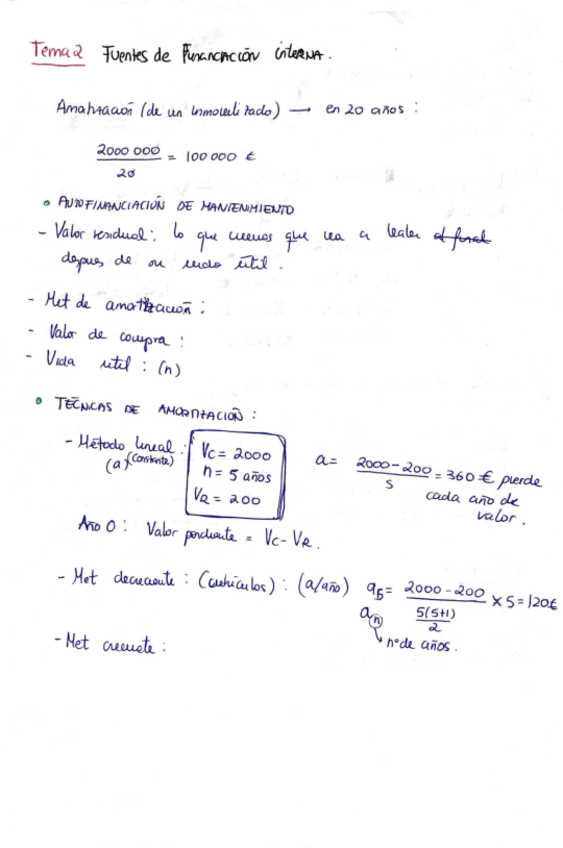 Tema 2 Fuentes de Financiación interna.
Amortización (de un inmovilizado) → en 20 años :
2000 000 / 20 = 100 000 €
• AUTOFINANCIACIÓN DE MANTENIMIENTO
- Valor residual: lo que creemos que va a valer al final
depues de su vida útil.
- Met de amortización :
- Valor de compra :
- Vida util : (n)
• TÉCNICAS DE AMORTIZACIÓN :
- Método lineal :
(a) (constante)
Vc = 2000
n = 5 años
VR = 200
a = 2000-200 / 5 = 360 € pierde
cada año de
valor.
Año 0 : Valor pendiente = Vc - VR.
- Met decreciente : (vehículos) : (a/año) a5 = 2000-200 / 5(5+1)/2 × 5 = 120€
an
↳ nº de años.
- Met creciente :